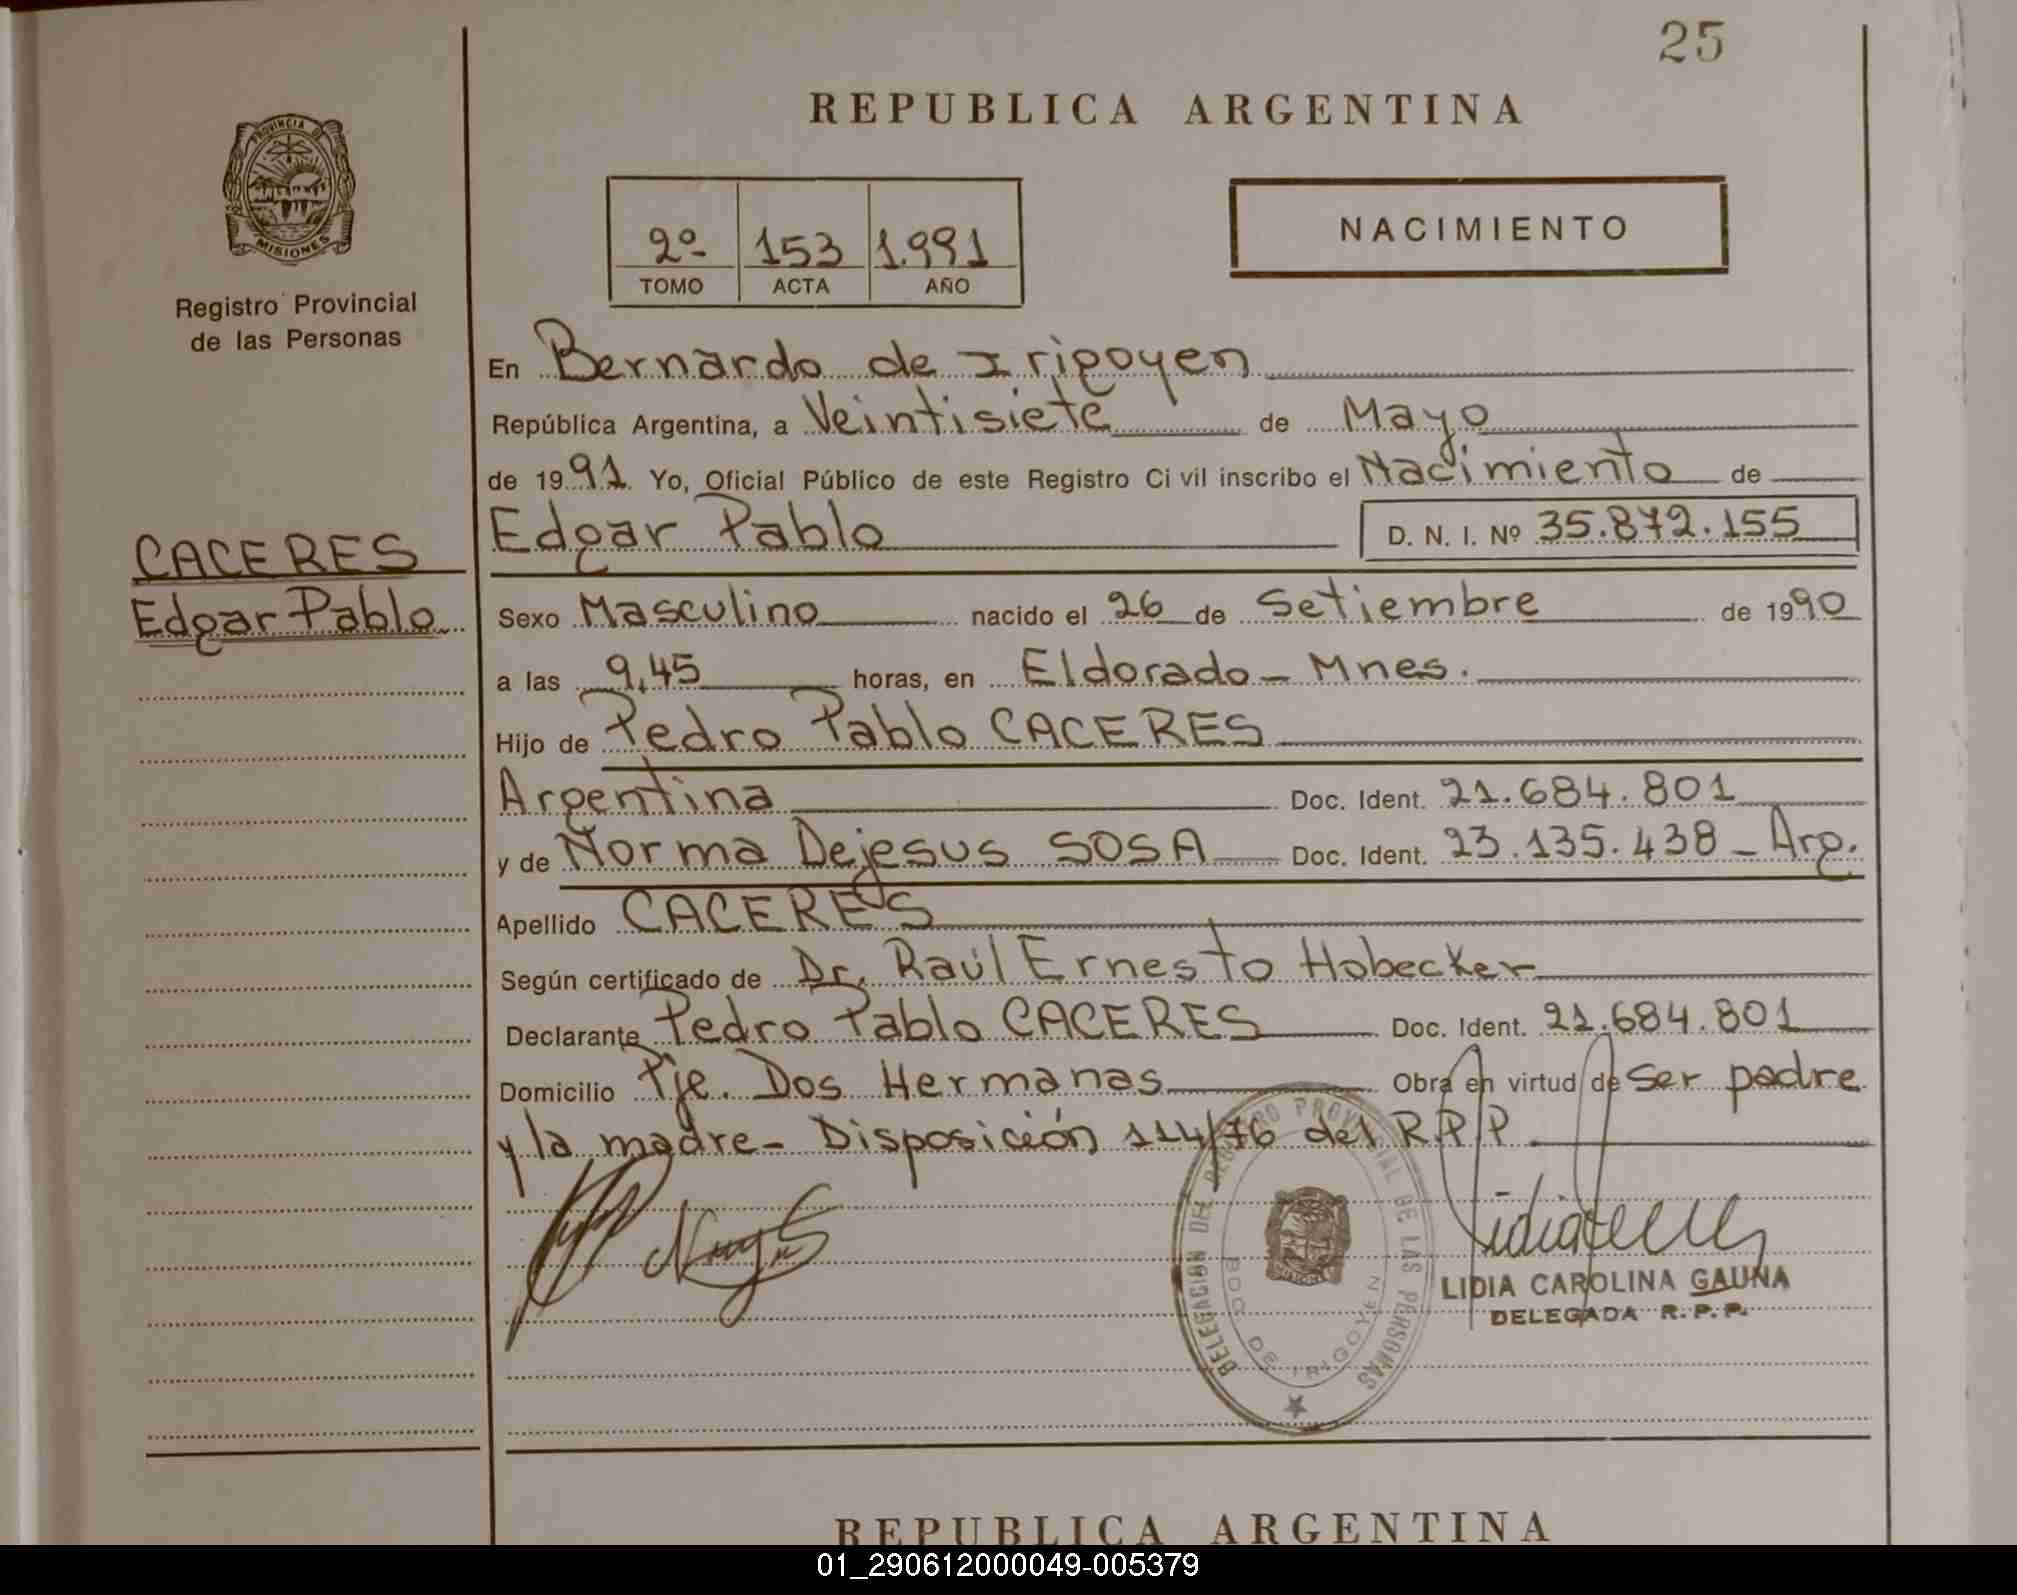 25
REPUBLICA ARGENTINA
PROVINCIA DE
MISIONES
Registro Provincial
de las Personas
2º 153 1.991
TOMO ACTA AÑO
NACIMIENTO
En Bernardo de Irigoyen
República Argentina, a Veintisiete de Mayo
de 1991 Yo, Oficial Público de este Registro Civil inscribo el Nacimiento de
CACERES
Edgar Pablo
Edgar Pablo D. N. I. Nº 35.872.155
Sexo Masculino nacido el 26 de Setiembre de 1990
a las 9,45 horas, en Eldorado - Mnes.
Hijo de Pedro Pablo CACERES
Argentina Doc. Ident. 21.684.801
y de Norma Dejesus SOSA Doc. Ident. 23.135.438 - Arg.
Apellido CACERES
Según certificado de Dr. Raúl Ernesto Hobecker
Declarante Pedro Pablo CACERES Doc. Ident. 21.684.801
Domicilio Pje. Dos Hermanas Obra en virtud de ser padre
y la madre - Disposición 114/76 del R.P.P
DELEGACION DEL REGISTRO PROVINCIAL DE LAS PERSONAS
BDO. DE IRIGOYEN
LIDIA CAROLINA GAUNA
DELEGADA R.P.P.
REPUBLICA ARGENTINA
01_290612000049-005379